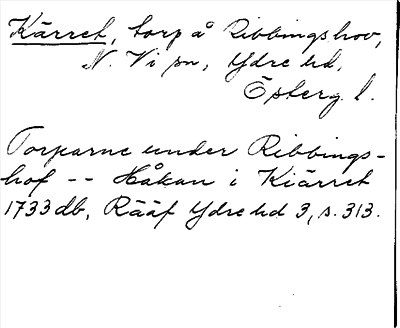 Kärret, torp å Ribbingshov,
N. Vi sn, Ydre hd,
Österg. l.
Torparne under Ribbings-
hof -- Håkan i Kiärret
1733 db, Rääf Ydre hd 3, s. 313.